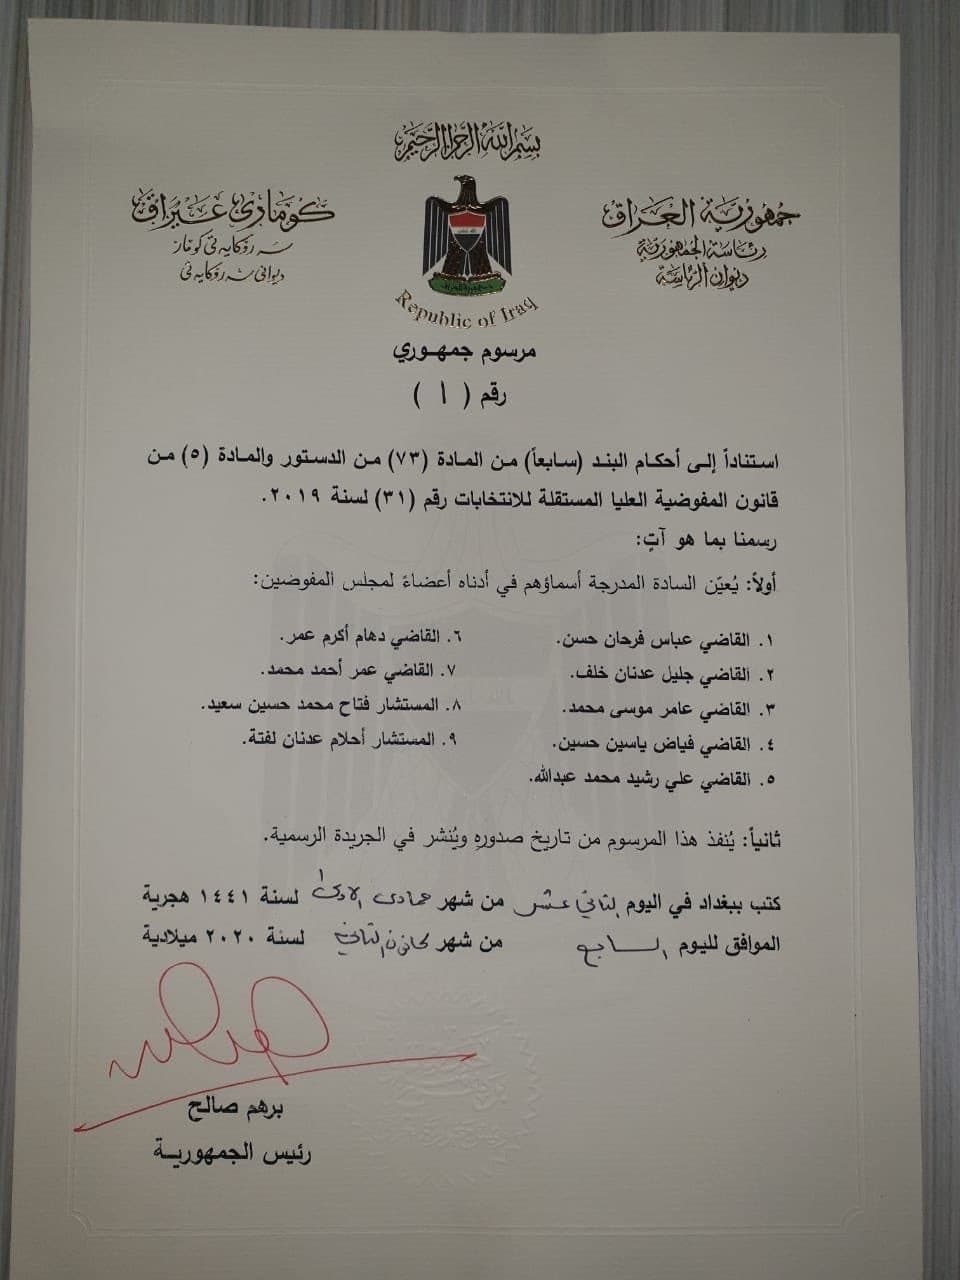 بسم الله الرحمن الرحيم
جمهورية العراق
رئاسة الجمهورية
ديوان الرئاسة
كۆماری عێراق
سەرۆکایەتی کۆمار
دیوانی سەرۆکایەتی
جمهورية العراق
Republic of Iraq
مرسوم جمهوري
رقم ( ١ )
استناداً إلى أحكام البند (سابعاً) من المادة (٧٣) من الدستور والمادة (٥) من
قانون المفوضية العليا المستقلة للانتخابات رقم (٣١) لسنة ٢٠١٩.
رسمنا بما هو آتٍ:
أولاً: يُعيّن السادة المدرجة أسماؤهم في أدناه أعضاءً لمجلس المفوضين:
١. القاضي عباس فرحان حسن.
٢. القاضي جليل عدنان خلف.
٣. القاضي عامر موسى محمد.
٤. القاضي فياض ياسين حسين.
٥. القاضي علي رشيد محمد عبدالله.
٦. القاضي دهام أكرم عمر.
٧. القاضي عمر أحمد محمد.
٨. المستشار فتاح محمد حسين سعيد.
٩. المستشار أحلام عدنان لفتة.
ثانياً: يُنفذ هذا المرسوم من تاريخ صدورهِ ويُنشر في الجريدة الرسمية.
كتب ببغداد في اليوم الثاني عشر من شهر جمادى الاولى لسنة ١٤٤١ هجرية
الموافق لليوم السابع من شهر كانون الثاني لسنة ٢٠٢٠ ميلادية
برهم صالح
رئيس الجمهورية